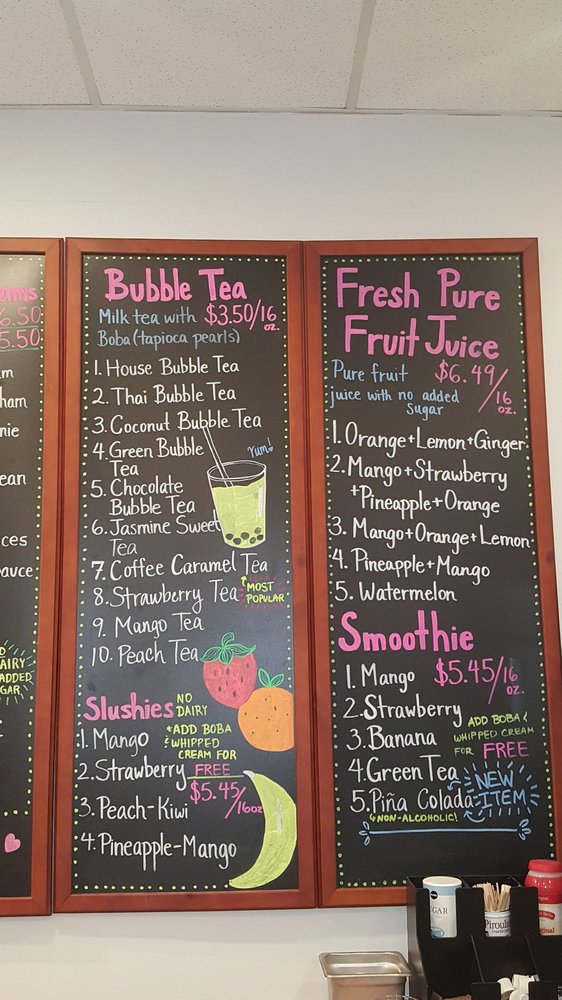 ams
6.50
5.50
m
ham
nie
ean
ces
auce
DAIRY
ADDED
GAR
Bubble Tea
Milk tea with $3.50/16 oz.
Boba (tapioca pearls)
1. House Bubble Tea
2. Thai Bubble Tea
3. Coconut Bubble Tea
4. Green Bubble
Tea
yum!
5. Chocolate
Bubble Tea
6. Jasmine Sweet
Tea
7. Coffee Caramel Tea
8. Strawberry Tea
MOST
POPULAR
9. Mango Tea
10. Peach Tea
Slushies NO
DAIRY
1. Mango
*ADD BOBA
& WHIPPED
CREAM FOR
FREE
2. Strawberry
$5.45/16oz
3. Peach-Kiwi
4. Pineapple-Mango
Fresh Pure
Fruit Juice
Pure fruit $6.49/16 oz.
juice with no added
Sugar
1. Orange+Lemon+Ginger
2. Mango+Strawberry
+Pineapple+Orange
3. Mango+Orange+Lemon
4. Pineapple+Mango
5. Watermelon
Smoothie
1. Mango $5.45/16 oz.
2. Strawberry
3. Banana
ADD BOBA &
WHIPPED CREAM
FOR FREE
4. Green Tea
5. Piña Colada
NEW
ITEM
NON-ALCOHOLIC!
GAR
Piroulin
ginal